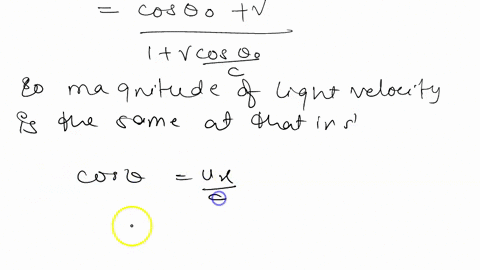 = cosθ₀ + v
1 + v cosθ₀
c
So magnitude of light velocity
is the same at that ins'
cosθ = ux
c